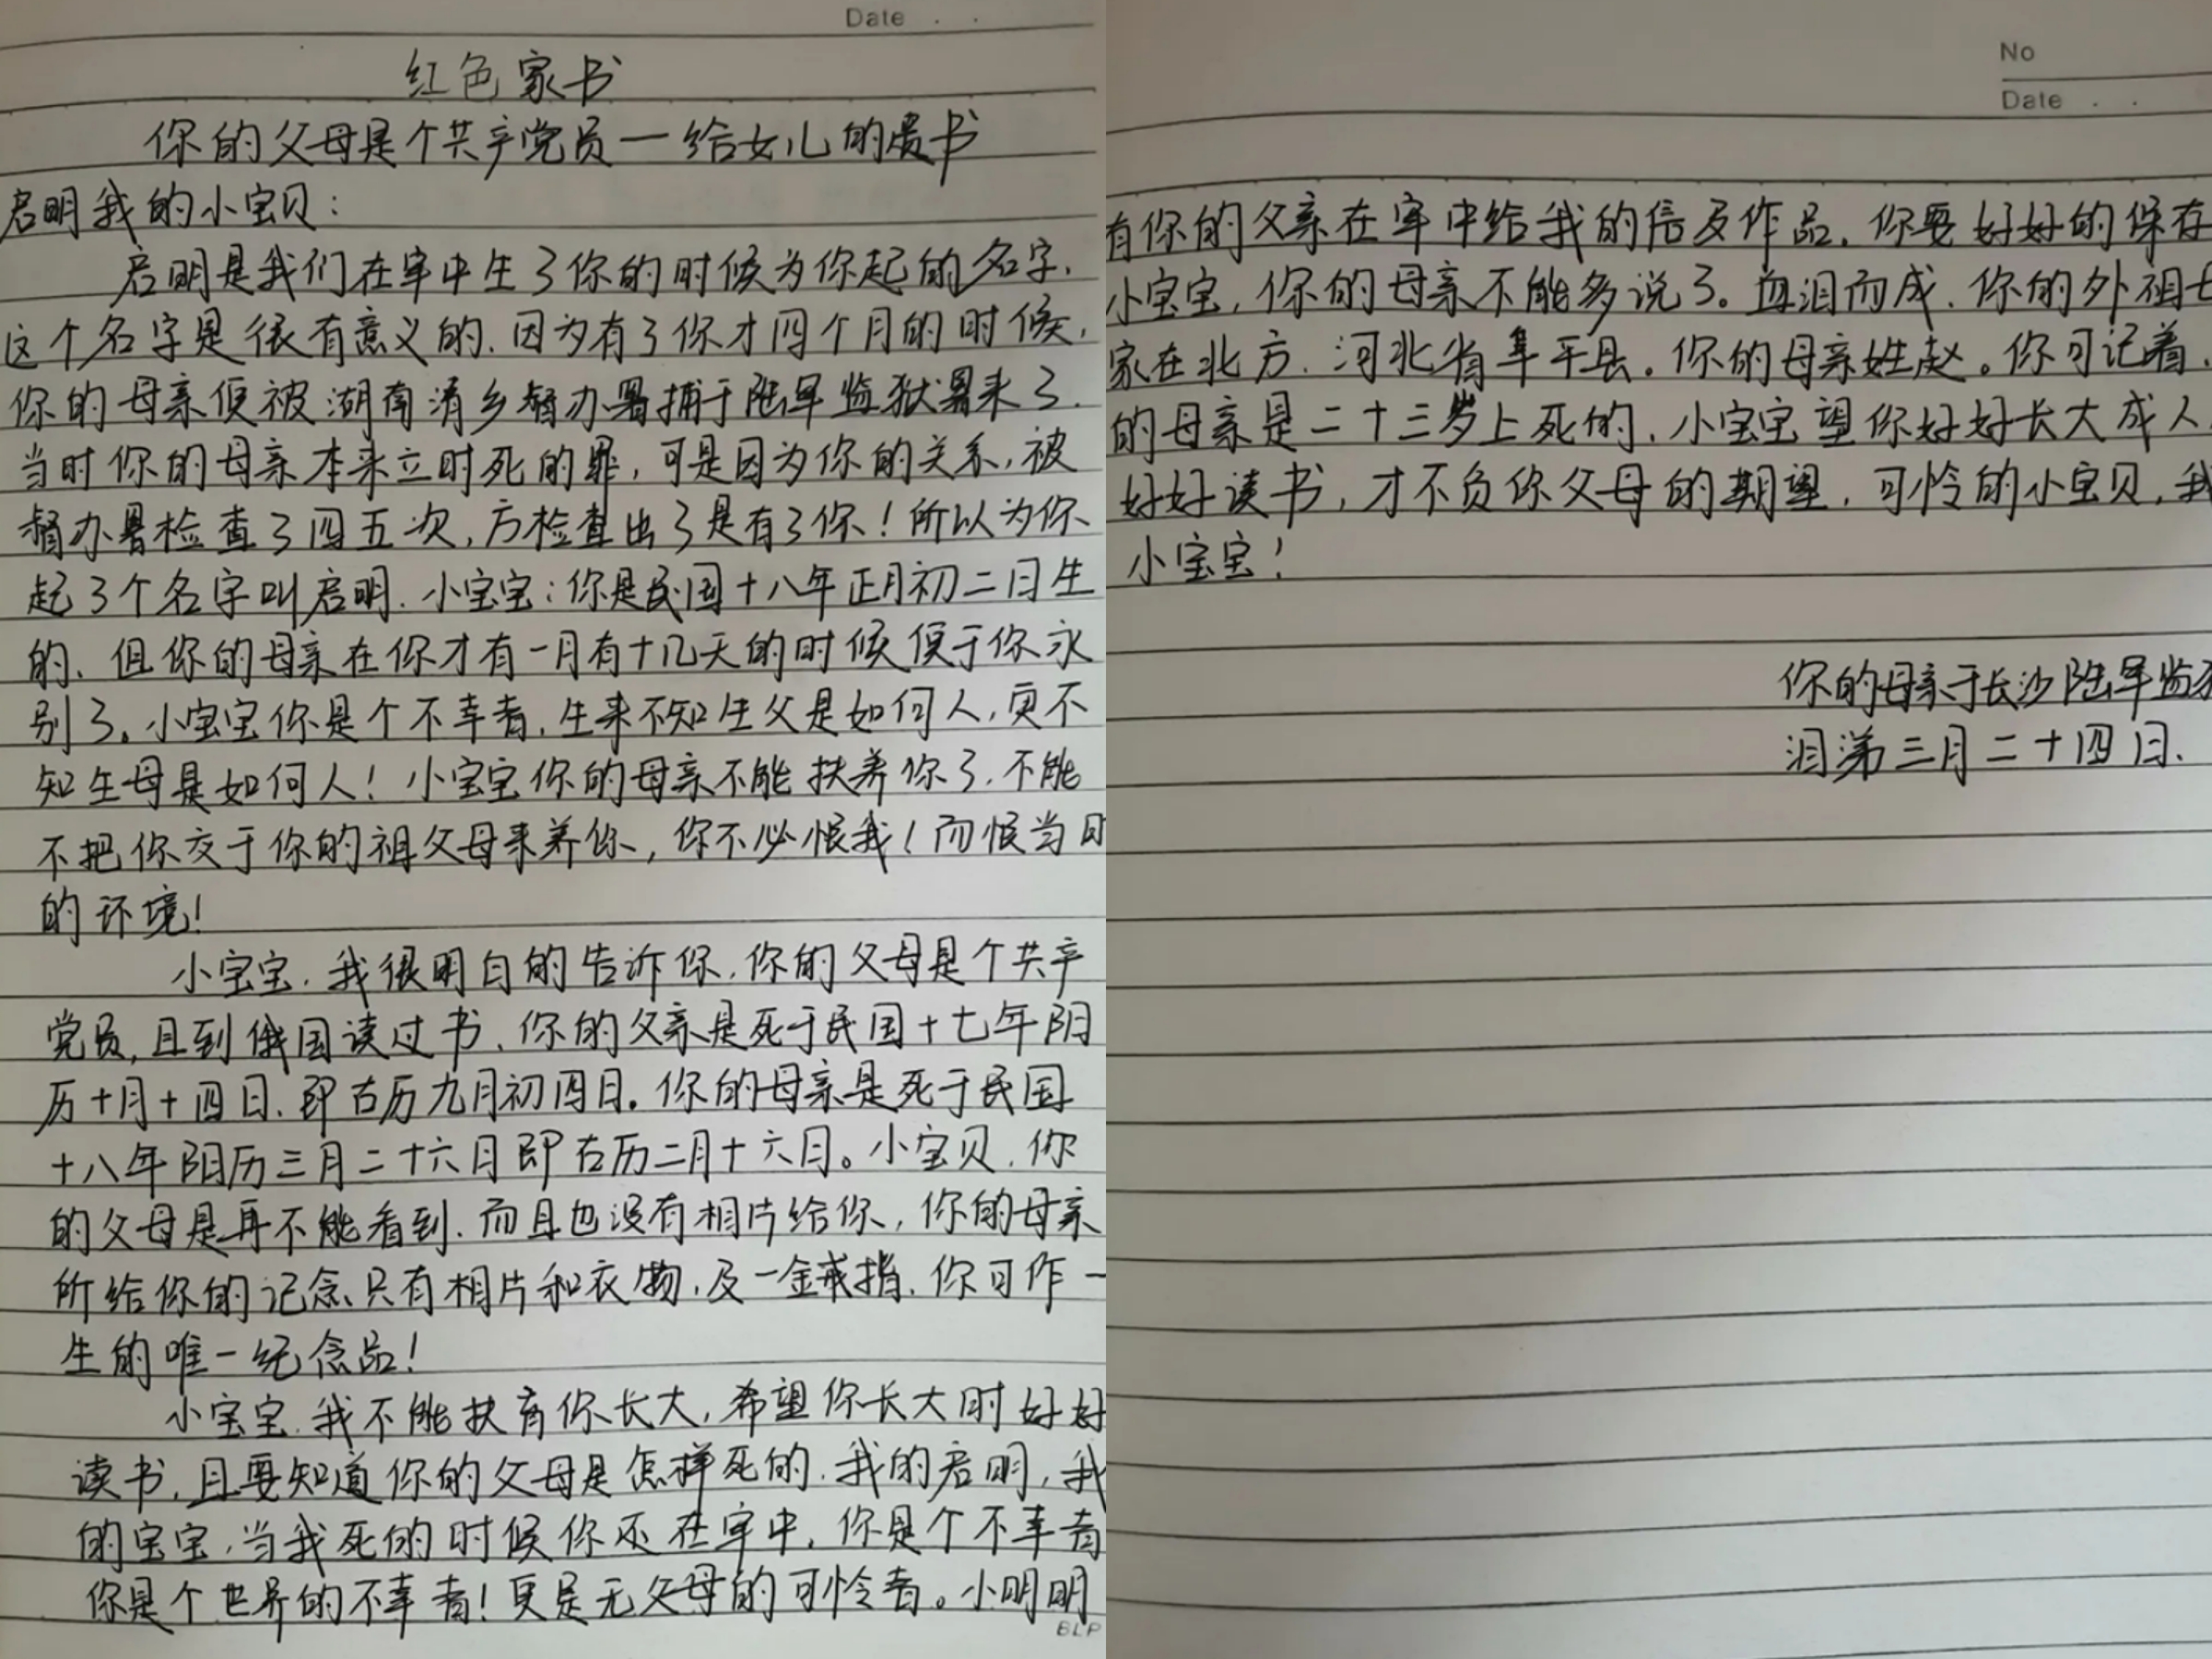 Date . .
红色家书
你的父母是个共产党员—给女儿的遗书
启明我的小宝贝：
启明是我们在牢中生了你的时候为你起的名字，
这个名字是很有意义的，因为有了你才四个月的时候，
你的母亲便被湖南清乡督办署捕于陆军监狱署来了，
当时你的母亲本来立时死的罪，可是因为你的关系，被
督办署检查了四五次，方检查出了是有了你！所以为你
起了个名字叫启明，小宝宝：你是民国十八年正月初二日生
的，但你的母亲在你才有一月有十几天的时候便于你永
别了。小宝宝你是个不幸者，生来不知生父是如何人，更不
知生母是如何人！小宝宝你的母亲不能扶养你了，不能
不把你交于你的祖父母来养你，你不必恨我！而恨当时
的环境！
小宝宝，我很明白的告诉你，你的父母是个共产
党员，且到俄国读过书，你的父亲是死于民国十七年阴
历十月十四日，即古历九月初四日。你的母亲是死于民国
十八年阳历三月二十六月即古历二月十六日。小宝贝，你
的父母是再不能看到，而且也没有相片给你，你的母亲
所给你的记念只有相片和衣物，及一金戒指，你可作一
生的唯一纪念品！
小宝宝，我不能扶育你长大，希望你长大时好好
读书，且要知道你的父母是怎样死的，我的启明，我
的宝宝，当我死的时候你还在牢中，你是个不幸者
你是个世界的不幸者！更是无父母的可怜者。小明明
BLP
No
Date . .
有你的父亲在牢中给我的信及作品，你要好好的保存
小宝宝，你的母亲不能多说了。血泪而成，你的外祖母
家在北方，河北省阜平县。你的母亲姓赵。你可记着，
的母亲是二十三岁上死的，小宝宝望你好好长大成人
好好读书，才不负你父母的期望，可怜的小宝贝，我
小宝宝！
你的母亲于长沙陆军监狱
泪涕三月二十四日，